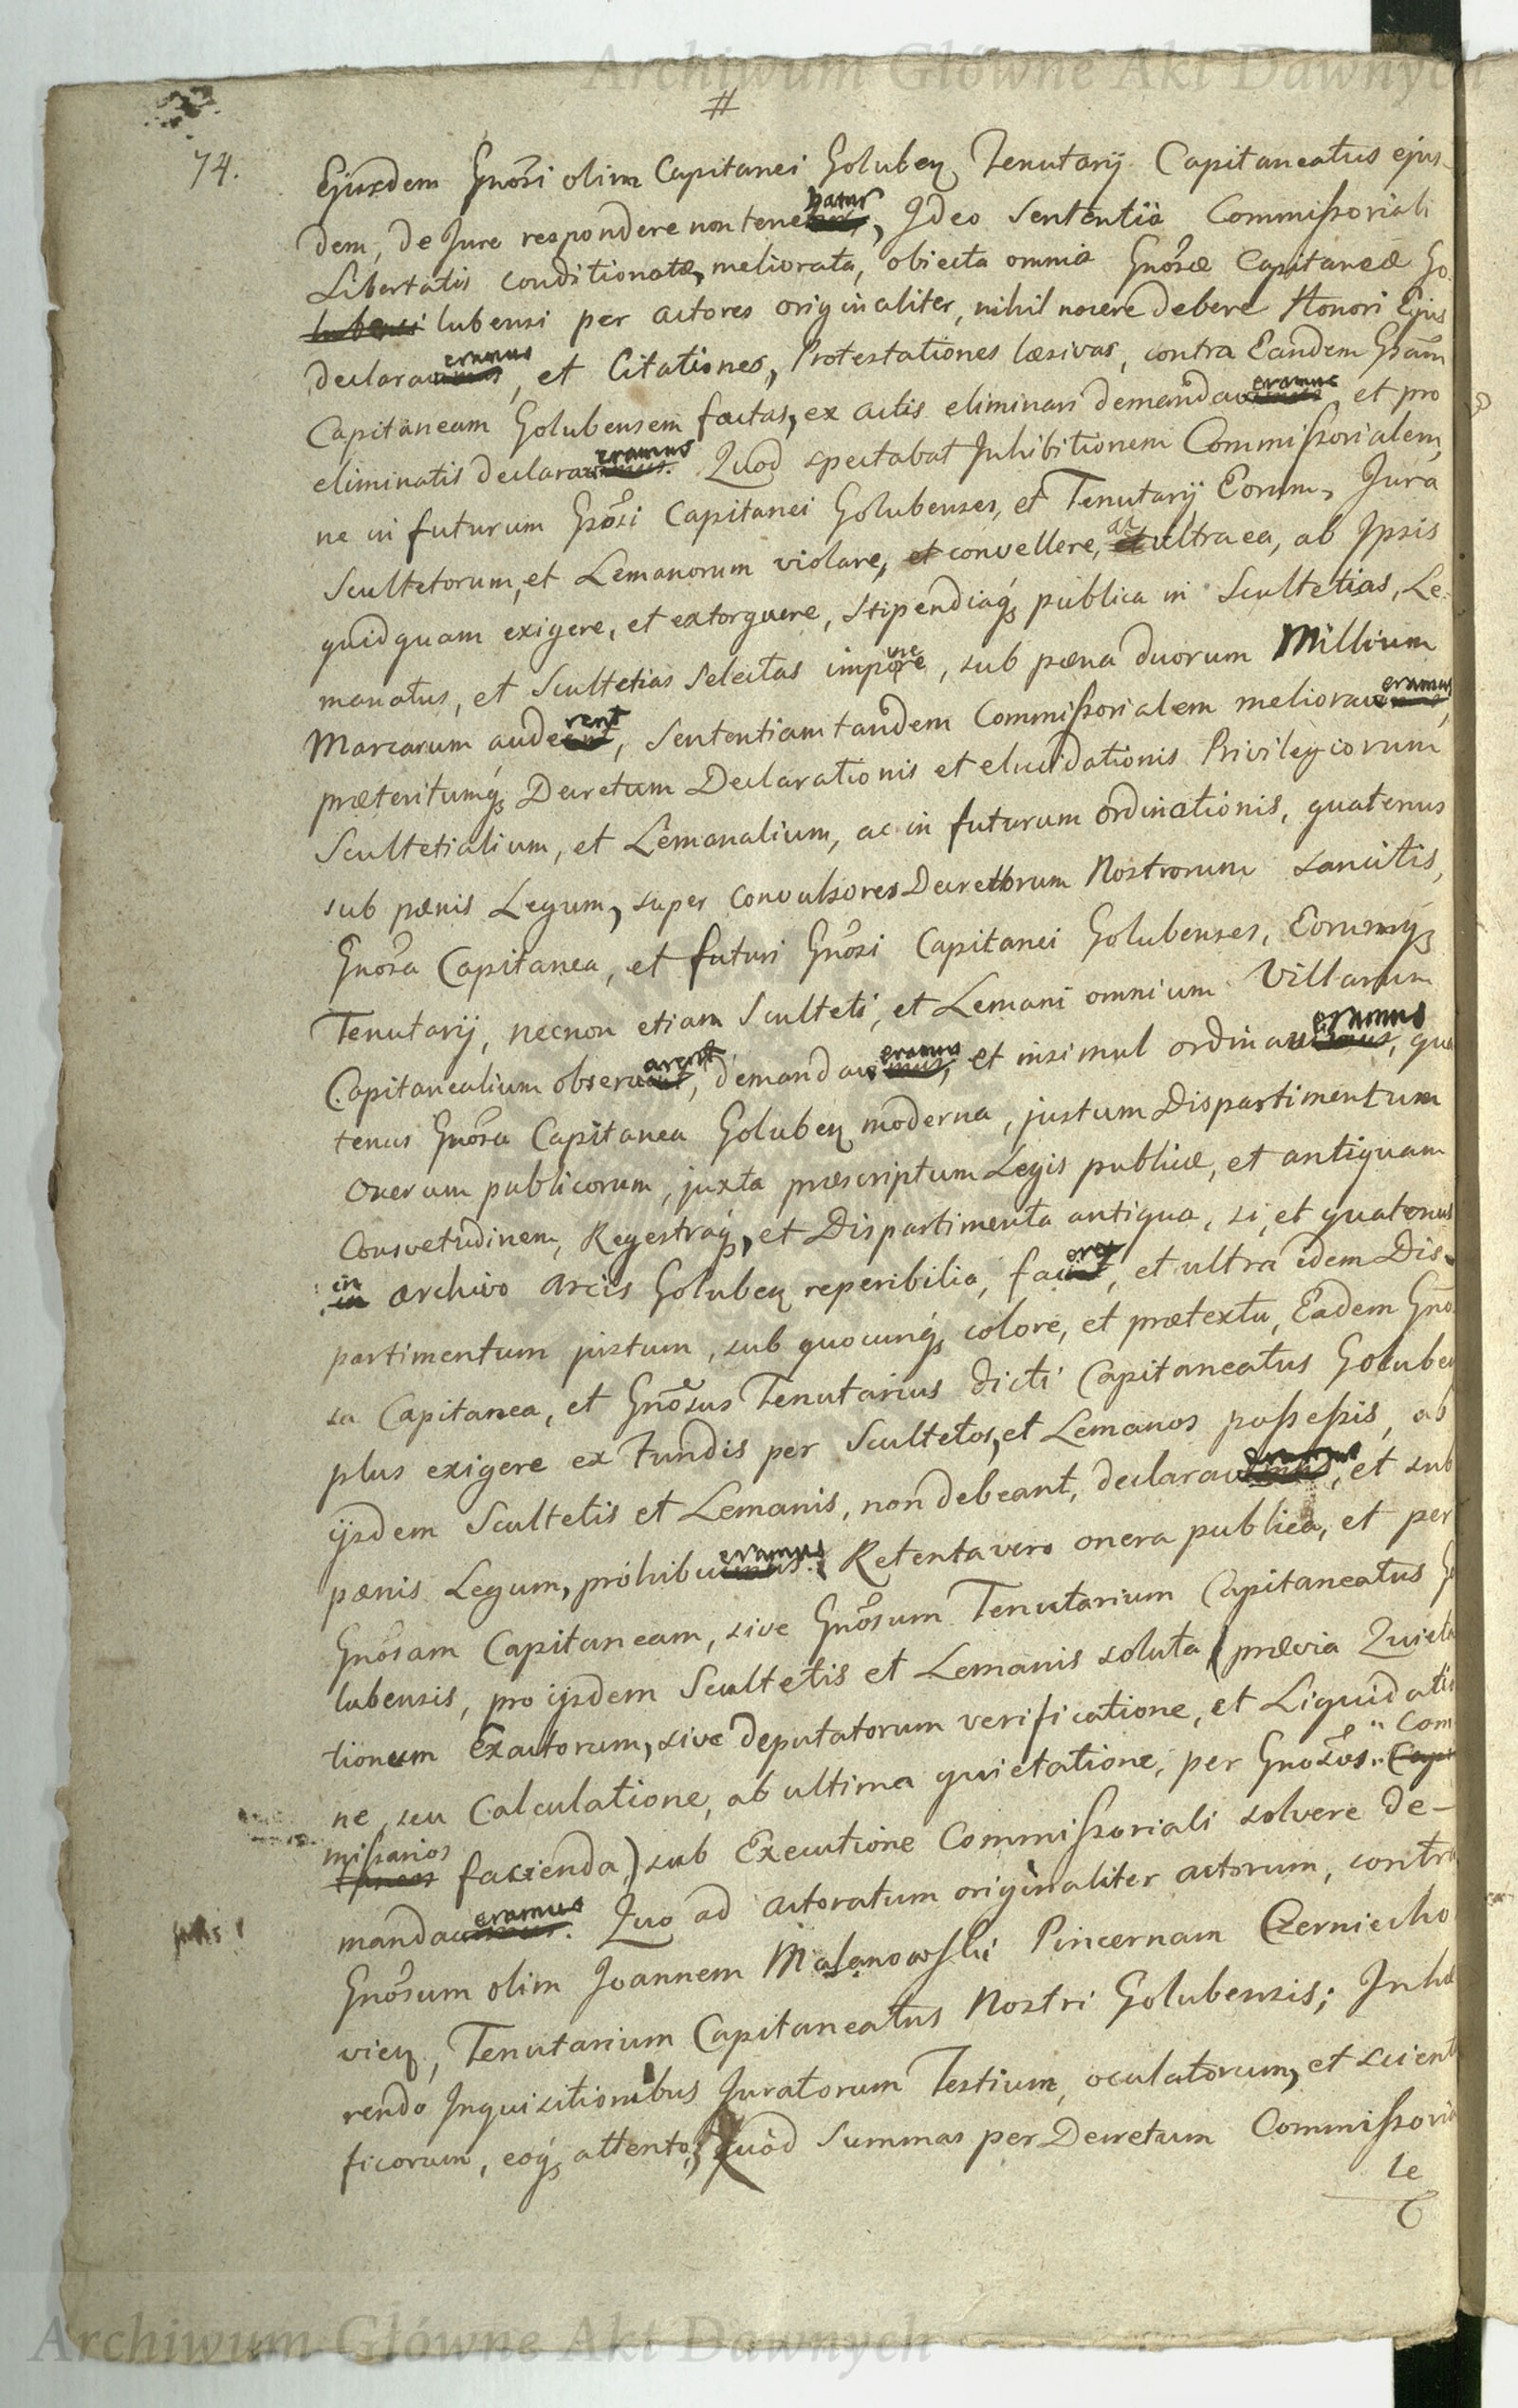 Archiwum Główne Akt Dawnych
#
74.
Ejusdem Gnosi olim Capitanei Goluben Tenutarij Capitaneatus ejus-
dem, de Jure respondere non tenebatur, Ideo Sententia Commissoriali
Libertatis conditionatæ, meliorata, obiecta omnia Gnosæ Capitaneæ Go-
lubensi lubensi per actores originaliter, nihil nocere debere Honori Ejus
declaraveramus, et Citationes, Protestationes læsivas, contra Eandem Gsam
Capitaneam Golubensem factas, ex actis eliminari demandaveramus et pro
eliminatis declaraveramus. Quod spectabat Inhibitionem Commissorialem,
ne in futurum Gnosi Capitanei Golubenses, et Tenutarij Eorum, Jura
Scultetorum, et Lemanorum violare, et convellere, ac et ultra ea, ab Ipsis
quidquam exigere, et extorquere, stipendiaq publica in Scultetias, Le-
manatus, et Scultetias Selectas imponere, sub pæna duorum Millium
Marcarum auderent, Sententiam tandem Commissorialem melioraveramus,
præteritumq Decretum Declarationis et elucidationis Privilegiorum
Scultetialium, et Lemanalium, ac in futurum ordinationis, quatenus
sub pænis Legum, super Convulsores Decretorum Nostrorum sancitis,
Gnosa Capitanea, et futuri Gnosi Capitanei Golubenses, Eorumq
Tenutarij, necnon etiam Sculteti, et Lemani omnium Villarum
Capitanealium observarent, demandaveramus, et insimul ordinaveramus, qua
tenus Gnosa Capitanea Goluben moderna, justum Dispartimentum
Onerum publicorum, juxta præscriptum Legis publicæ, et antiquam
Consvetudinem, Regestraq, et Dispartimenta antiqua, si, et quatenus
in in archivo Arcis Goluben reperibilia, faceret, et ultra idem Dis-
partimentum justum, sub quocunq colore, et prætextu, Eadem Gno
sa Capitanea, et Gnosus Tenutarius dicti Capitaneatus Goluben
plus exigere ex Fundis per Scultetos, et Lemanos possessis, ab
ijsdem Scultetis et Lemanis, non debeant, declaraveramus, et sub
pænis Legum, prohibueramus. Retenta vero onera publica, et per
Gnosam Capitaneam, sive Gnosum Tenutarium Capitaneatus Go
lubensis, pro ijsdem Scultetis et Lemanis soluta (prævia Quieta
tionum Exactorum, sive deputatorum verificatione, et Liquidatio
ne, seu Calculatione, ab ultima quietatione, per Gnosos Com
missarios facienda) sub Executione Commissoriali solvere de-
mandaveramus. Quo ad actoratum originaliter actorum, contra
Gnosum olim Joannem Małanowski Pincernam Czerniecho
vien, Tenutarium Capitaneatus Nostri Golubensis; Inhæ
rendo Inquisitionibus Juratorum Testium, oculatorum, et scienti
ficorum, eoq attento, Quod Summas per Decretum Commissoria
le
Archiwum Główne Akt Dawnych